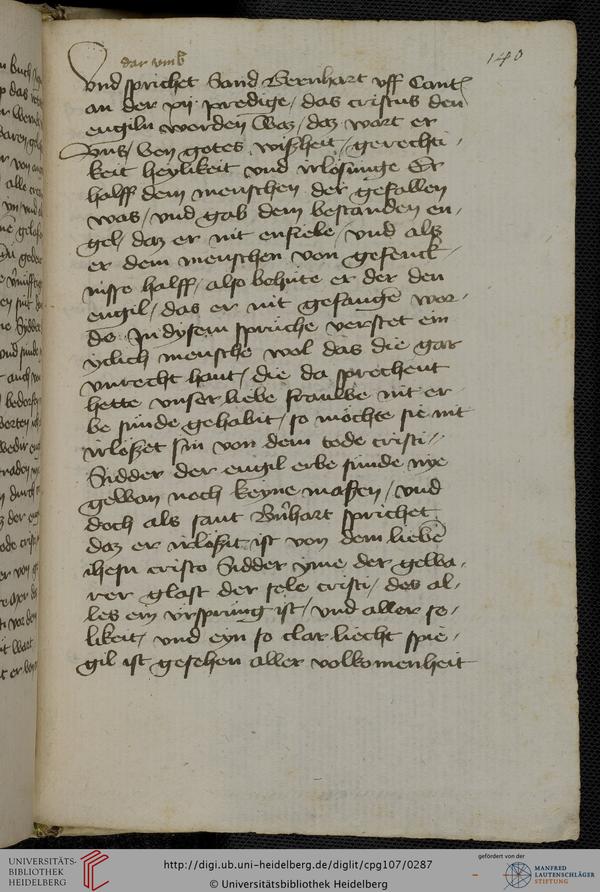 dar vmb
140
Vnd sprichet Sand Bernhart vff Cant
an der xij predige / das cristus den
engiln worden Waz / daz wart er
Vns / Von gotes wißheit / gerechti-
keit heylikeit vnd irlosunge Er
halff dem menschen der gefallen
was / vnd gab dem bestanden en-
gel / daz er nit enfiele / vnd alß
er dem menschen von gefenck-
nisse halff / also behute er der den
engil / das er nit gefangē wor-
de In dysem spruche verstet ein
yclich mensche wol das die gar
vnrecht hant / die da sprechent
hette vnser liebe frauwe nit er-
be sunde gehabit / so mochte sie nit
irloßet sin von dem tode cristi
Sidder der engil erbe sunde nye
gewan noch keyne masen / vnd
doch als sant Bnhart sprichet
daz er irloßit ist von dem liebē
ihesu cristo Sidder yme der gewa-
rer glast der sele cristi / des al-
les ein vrsprung ist / vnd aller se-
likeit / vnd eyn so clar liecht spie-
gil ist gesehen aller volkomenheit
UNIVERSITÄTS-
BIBLIOTHEK
HEIDELBERG
http://digi.ub.uni-heidelberg.de/diglit/cpg107/0287
© Universitätsbibliothek Heidelberg
gefördert von der
MANFRED
LAUTENSCHLÄGER
STIFTUNG